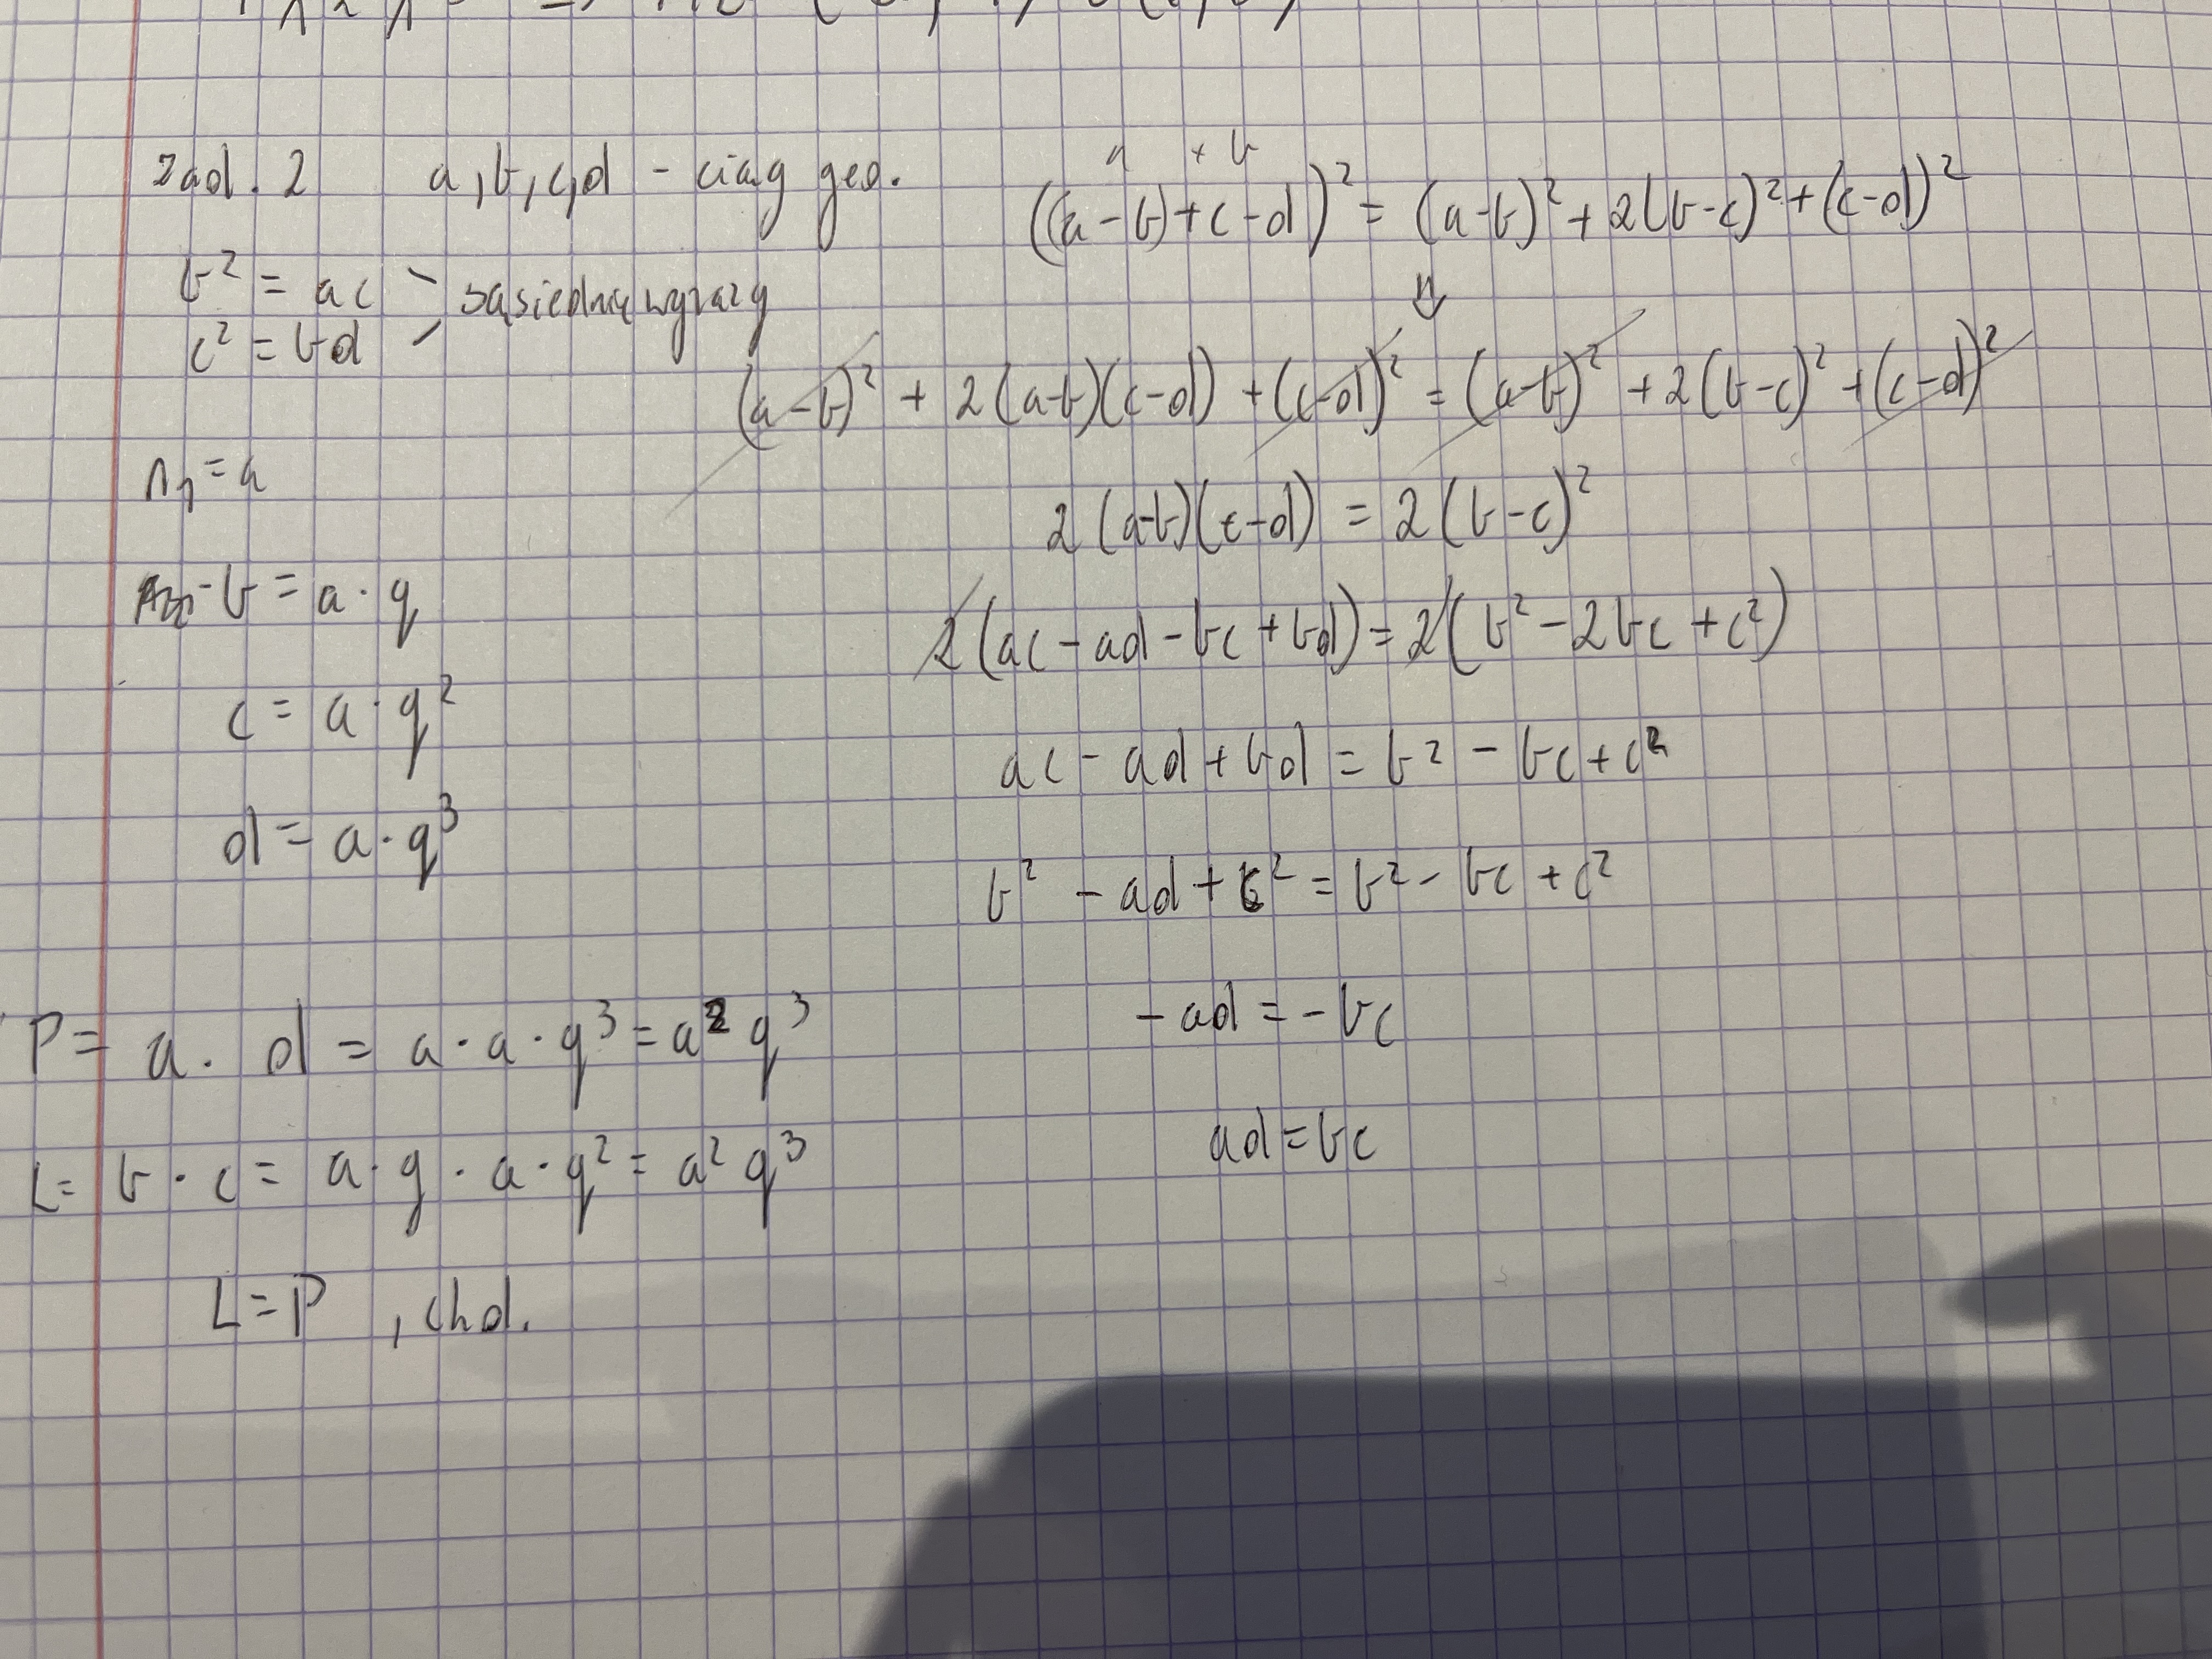 zad. 2 a, b, c, d - ciąg geo.
b² = ac
c² = bd > sąsiednie wyrazy
a₁ = a
b = a · q
c = a · q²
d = a · q³
P = a · d = a · a · q³ = a² q³
L = b · c = a · q · a · q² = a² q³
L = P , cnd.
a + b
((a - b) + c - d)² = (a-b)² + 2(b-c)² + (c-d)²
⇓
(a-b)² + 2(a-b)(c-d) + (c-d)² = (a-b)² + 2(b-c)² + (c-d)²
2(a-b)(c-d) = 2(b-c)²
2(ac - ad - bc + bd) = 2(b² - 2bc + c²)
ac - ad + bd = b² - bc + c²
b² - ad + c² = b² - bc + c²
-ad = -bc
ad = bc